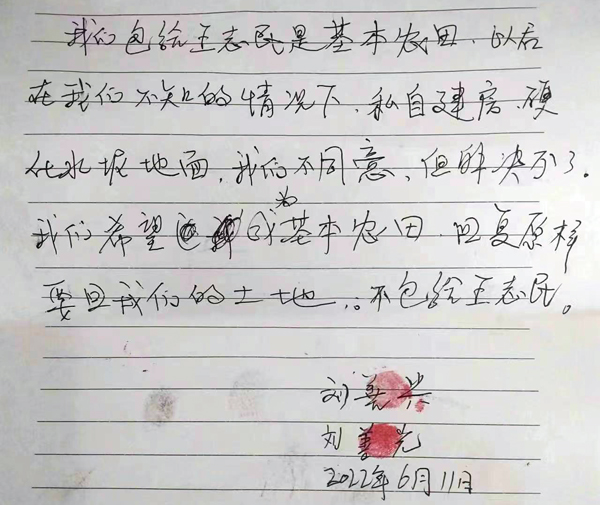 我们包给王志民是基本农田.以后
在我们不知的情况下.私自建房.硬
化水坭地面,我们不同意,但解决不了.
我们希望成为基本农田.回复原样
要回我们的土地.不包给王志民。
刘善兴
刘善光
2022年6月11日